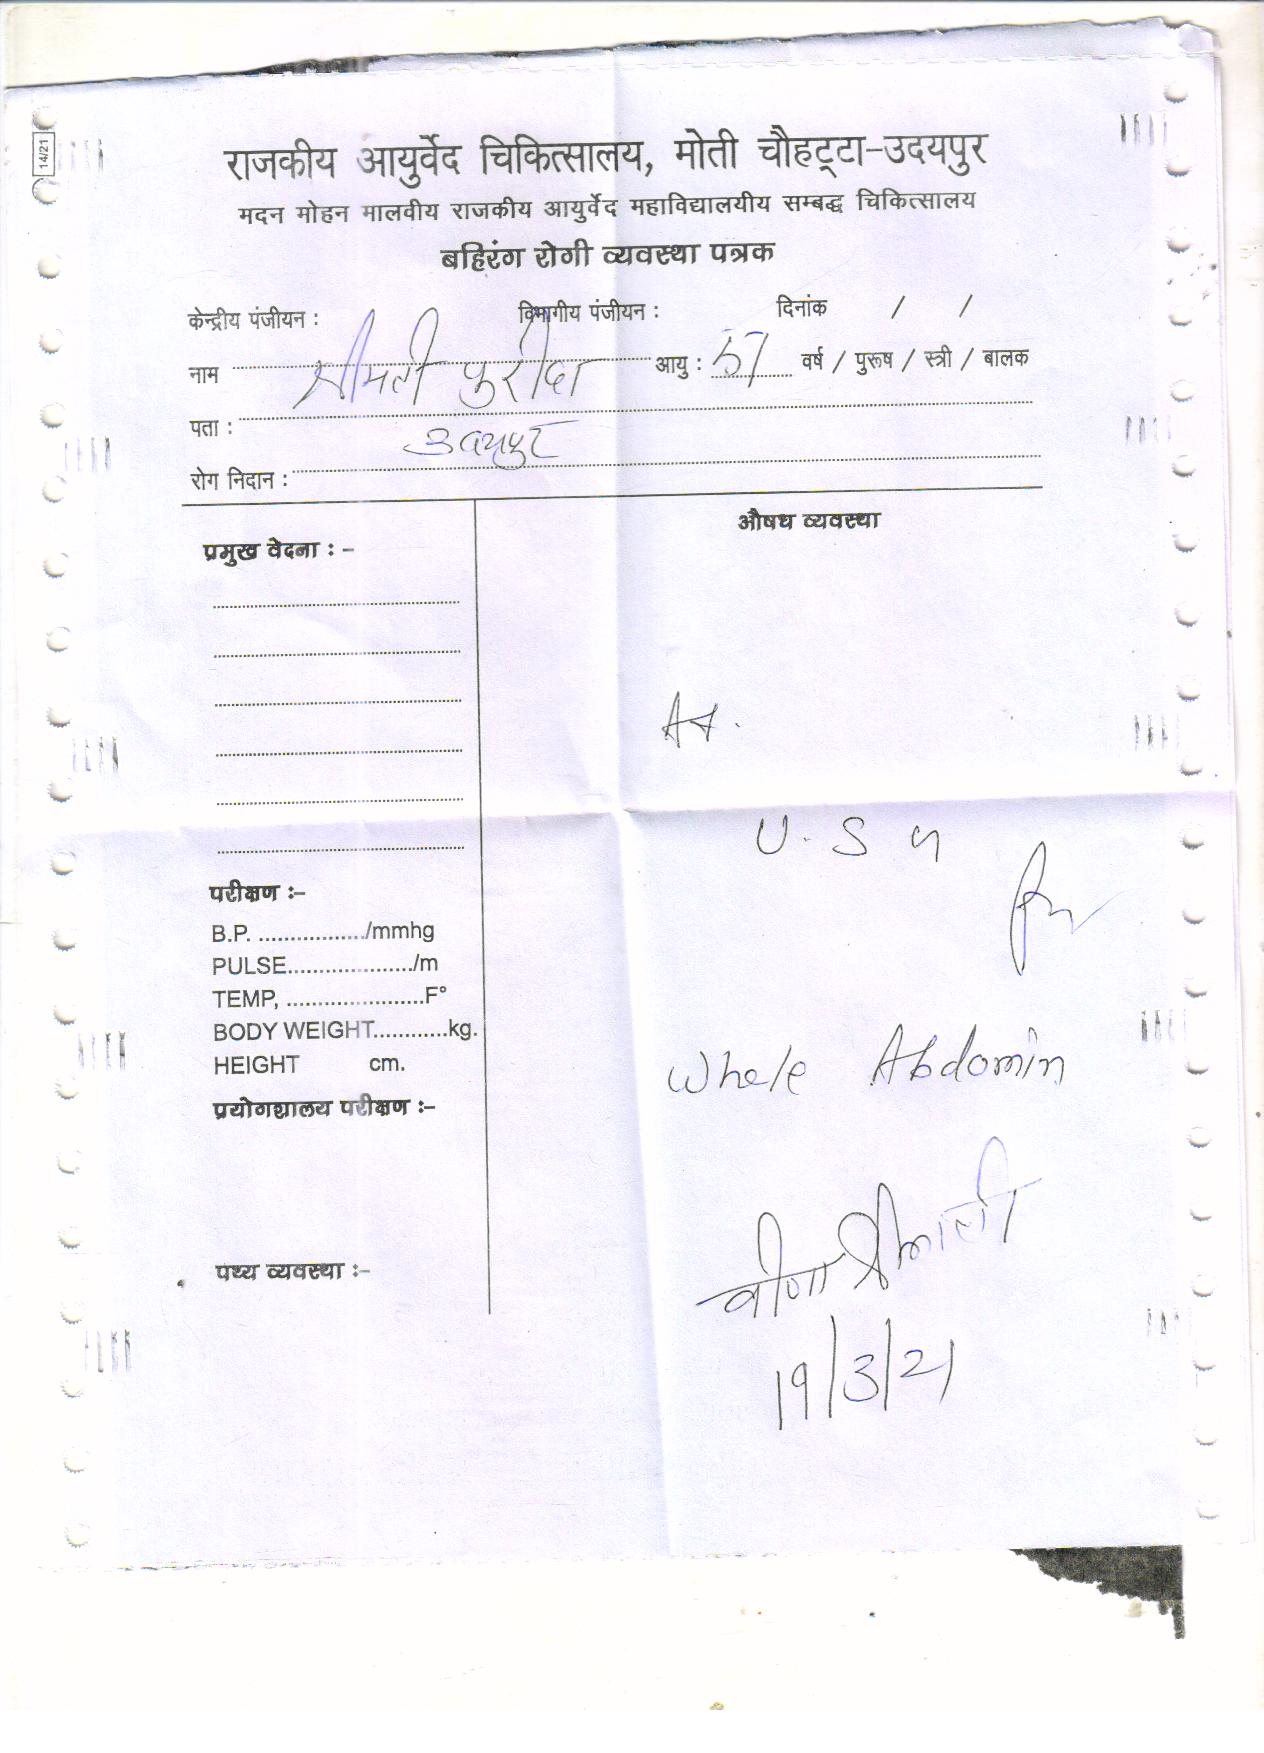 14/21
राजकीय आयुर्वेद चिकित्सालय, मोती चौहट्टा-उदयपुर
मदन मोहन मालवीय राजकीय आयुर्वेद महाविद्यालयीय सम्बद्ध चिकित्सालय
बहिरंग रोगी व्यवस्था पत्रक
केन्द्रीय पंजीयन : विभागीय पंजीयन : दिनांक / /
नाम श्रीमती आयु : 57 वर्ष / पुरूष / स्त्री / बालक
पता : उदयपुर
रोग निदान :
औषध व्यवस्था
प्रमुख वेदना : -
U.S G
परीक्षण :-
B.P. ................./mmhg
PULSE..................../m
TEMP, ......................F°
BODY WEIGHT............kg.
HEIGHT cm.
Whole Abdomin
प्रयोगशालय परीक्षण :-
वीणा श्रीमाली
पथ्य व्यवस्था :-
19/3/21